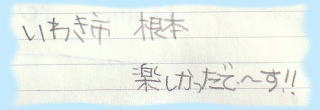 いわき市 根本
楽しかったで～す!!